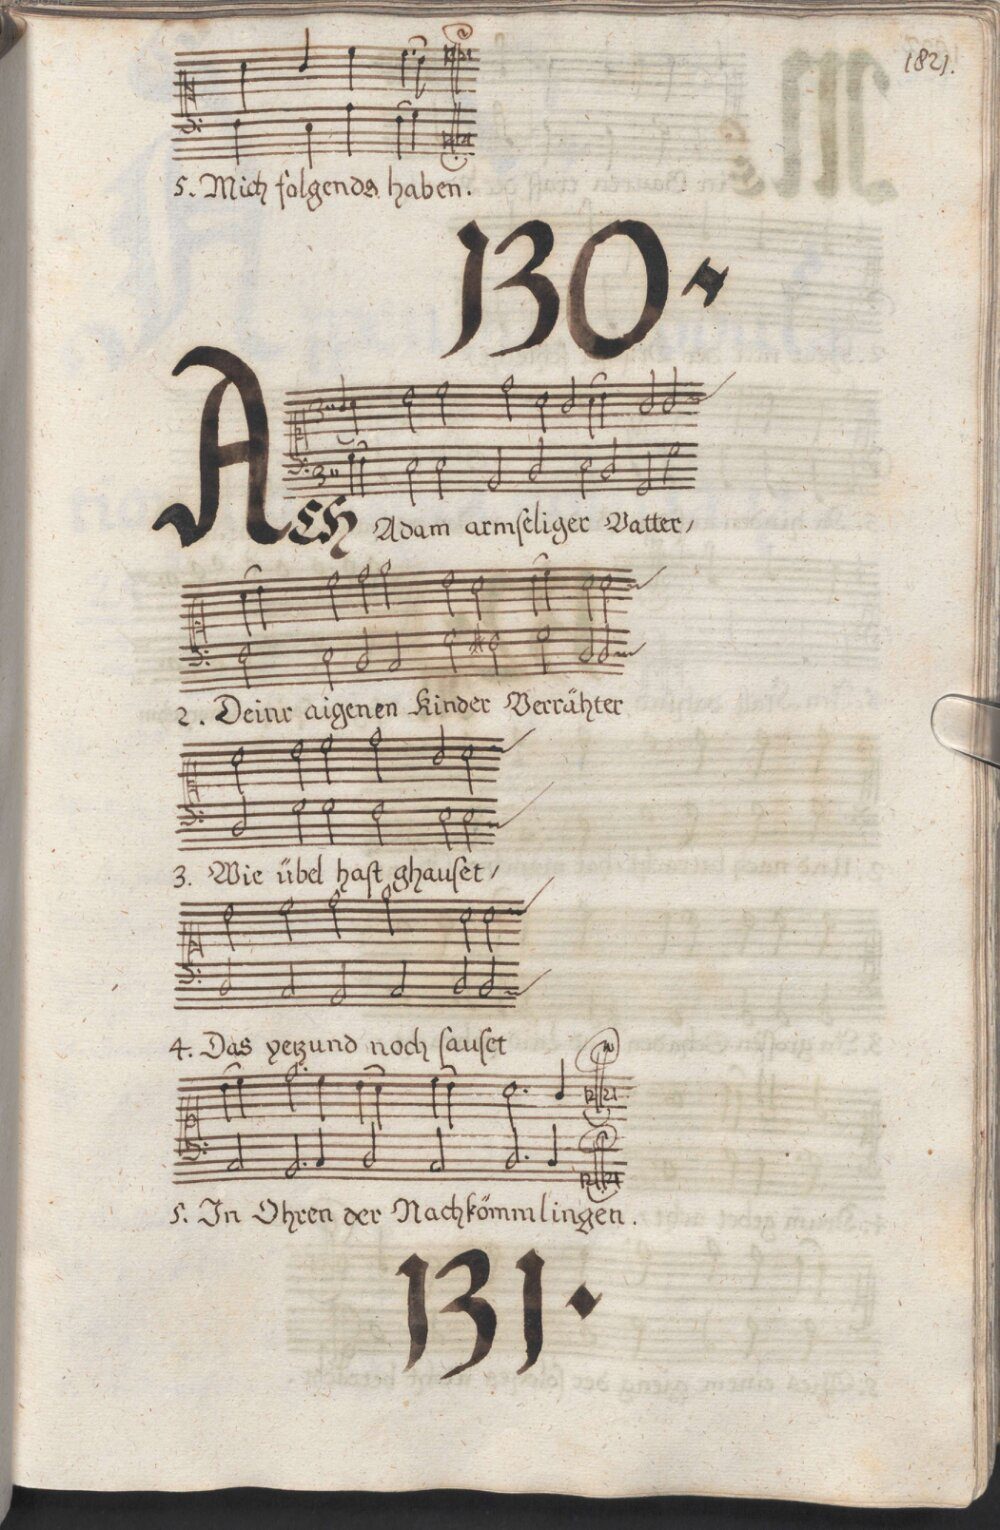 1821.
5. Mich folgends haben.
130.
Ach Adam armseliger Vatter,
2. Deinr aigenen Kinder Verrähter
3. Wie übel hast ghauset,
4. Das yetzund noch sauset
5. In Ohren der Nachkömmlingen.
131.